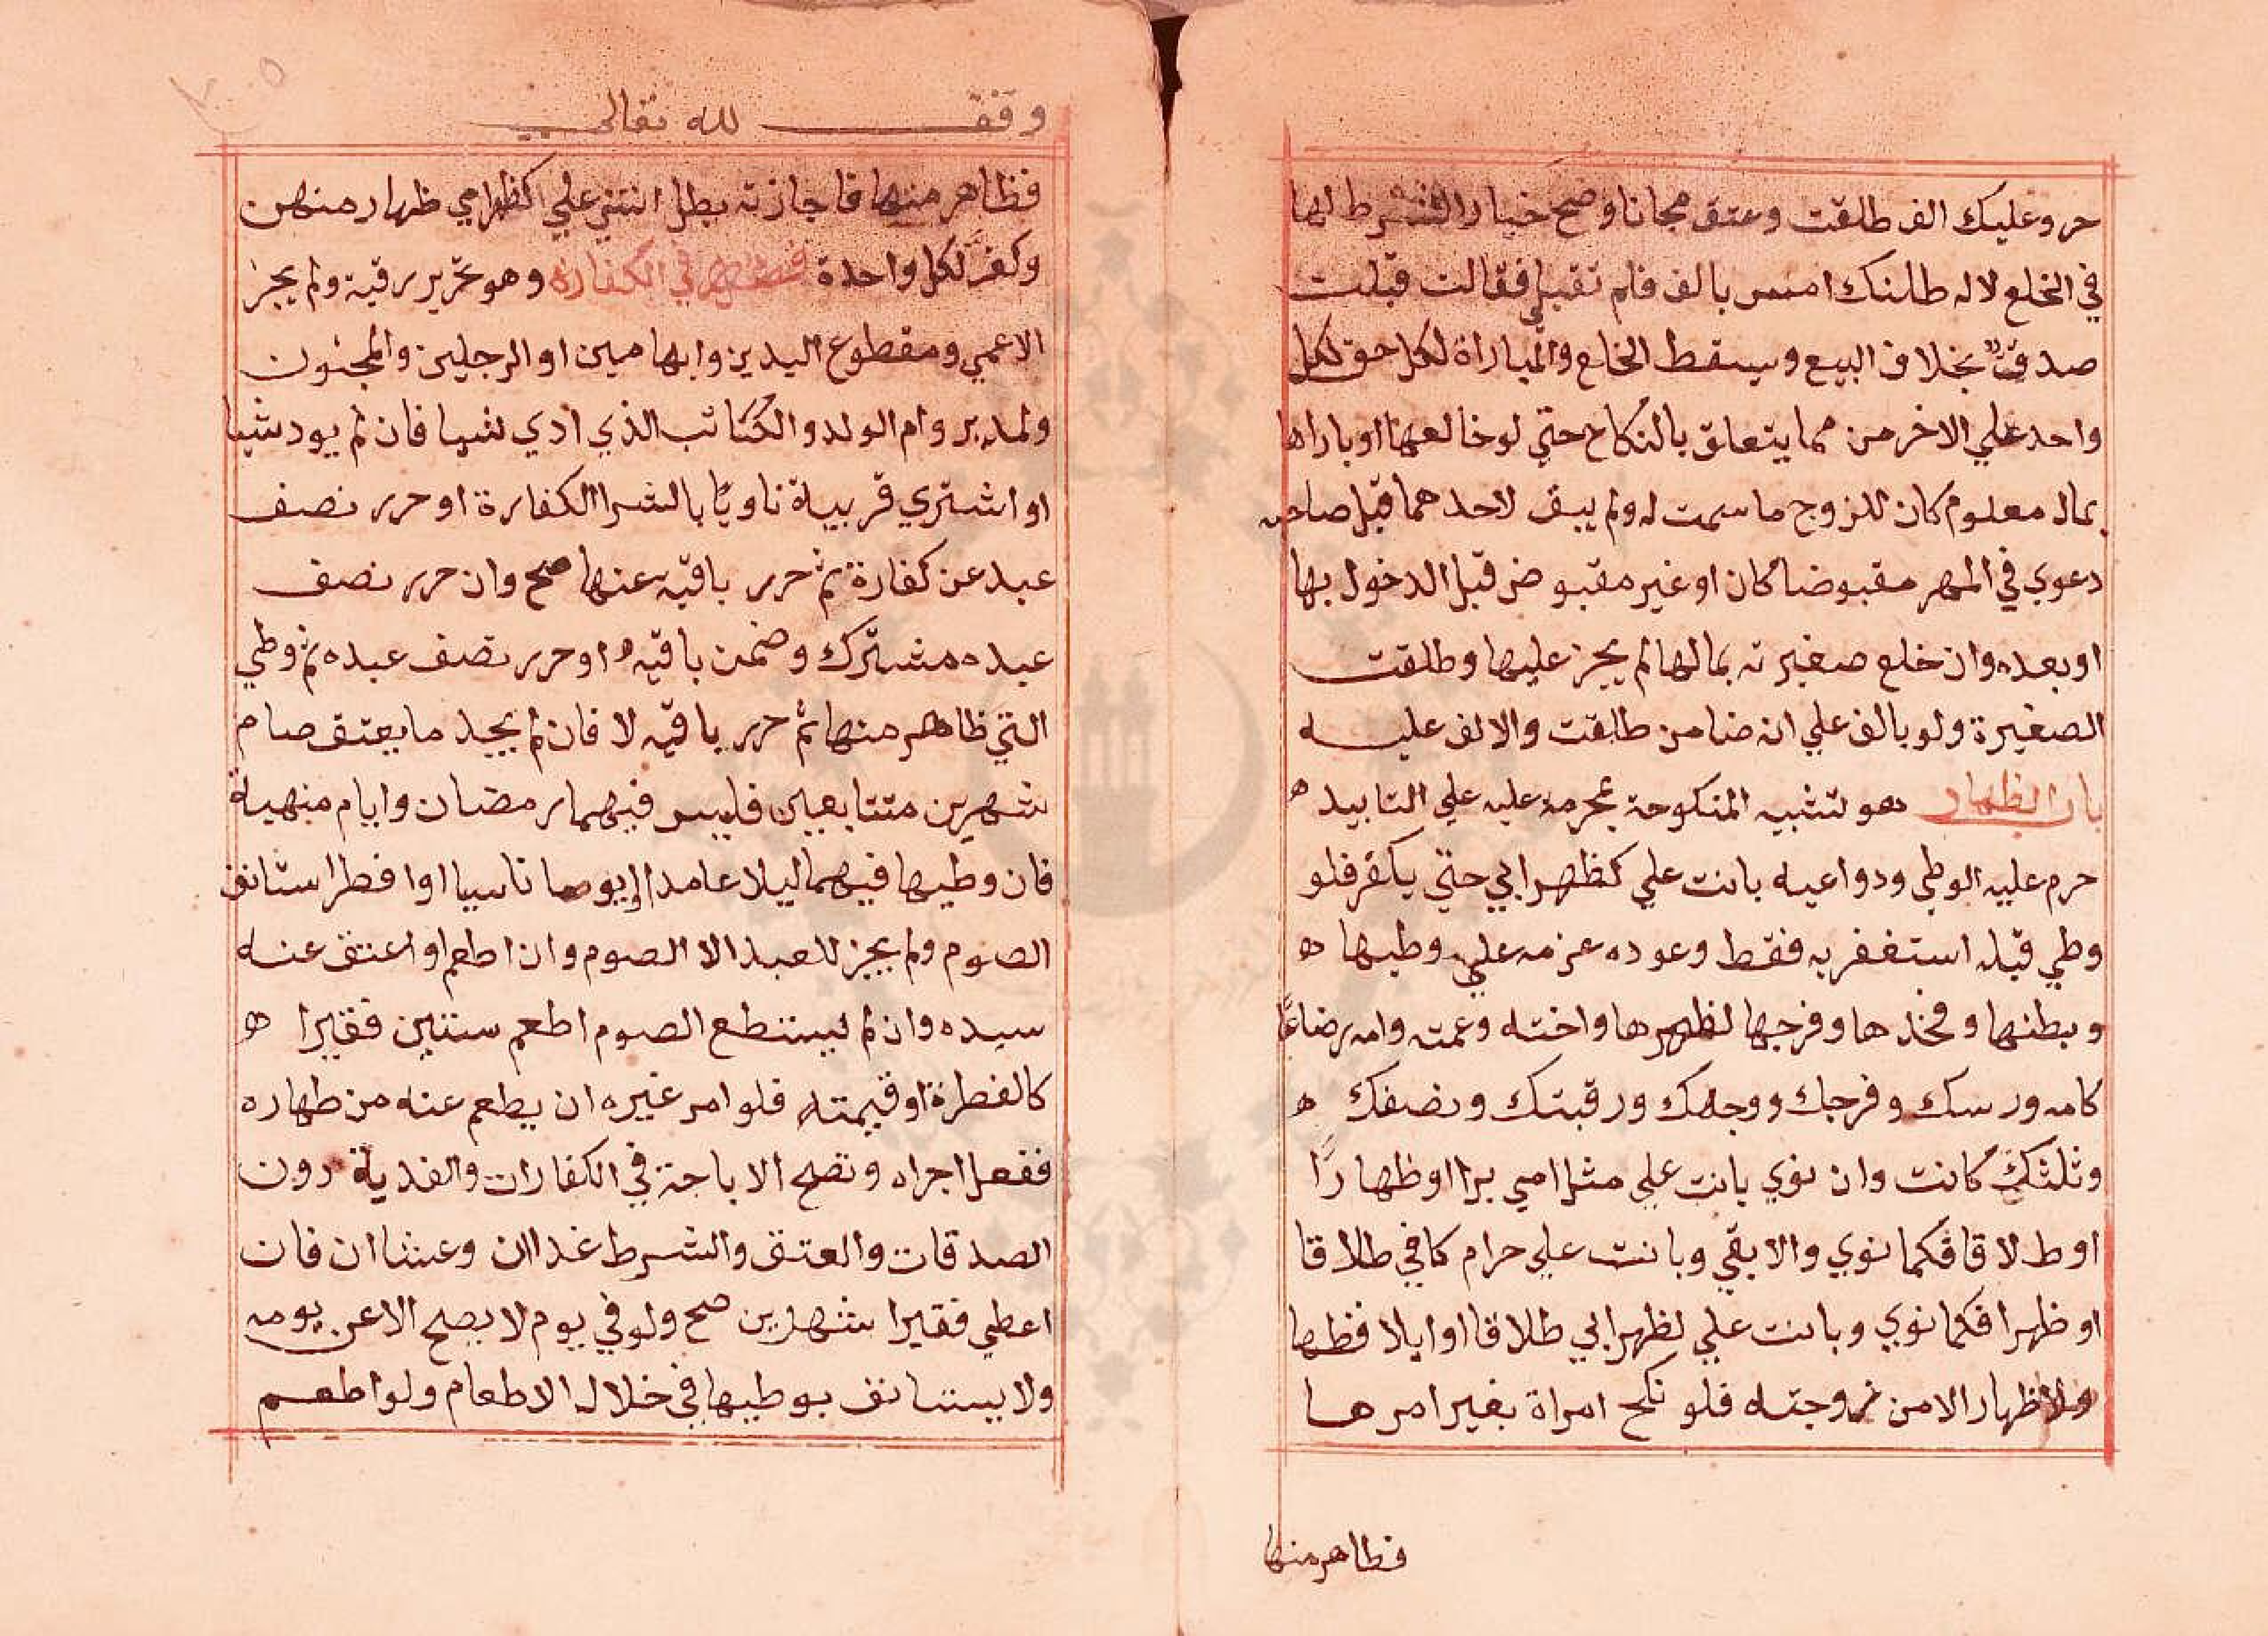 حر وعليك الف طلقت وعتق مجانا وصح خيار الشرط لها
في الخلع لا له طلقتك امس بالف فلم تقبلي فقالت قبلت
صدق بخلاف البيع ويسقط الخلع والمباراة لكل حق لكل
واحد علي الاخر من مما يتعلق بالنكاح حتي لو خالعها او باراها
بمال معلوم كان للزوج ما سمت له ولم يبق لاحدهما قبل صاحبه
دعوي في المهر مقبوضا كان او غير مقبوض قبل الدخول بها
او بعده وان خلع صغيرته بمالها لم يجز عليها وطلقت
الصغيرة ولو بالف علي انه ضامن طلقت والالف عليه
باب الظهار هو تشبيه المنكوحة بمحرمة عليه علي التابيد ه
حرم عليه الوطي ودواعيه بانت علي كظهر ابي حتي يكفر فلو
وطي قبله استغفر به فقط وعوده عزمه علي وطيها ه
وبطنها وفخذها وفرجها لظهرها واخته وعمته وامه رضاعا
كامه ورسك وفرجك ووجهك ورقبتك ونصفك ه
وثلثك كانت وان نوي بانت علي مثل امي برا او ظهارا
او طلاقا فكما نوي والا بقي وبانت علي حرام كافي طلاقا
او ظهرا فكما نوي وبانت علي لظهر ابي طلاقا او ايلا فظها
ولا ظهار الا من زوجته فلو نكح امراة بغير امرها
فظاهر منها
وقف لله تعالي
فظاهر منها فاجازته بطل انتن علي كظهر امي ظهار منهن
وكفر لكل واحدة فصل في الكفارة وهو تحرير رقبة ولم يجز
الاعمي ومقطوع اليدين وابهامين او الرجلين والمجنون
ولمدبر وام الولد والكتاتب الذي ادي شيا فان لم يود شيا
او اشتري قريبه ناويا بالشرا الكفارة او حرر نصف
عبد عن كفارة ثم حرر باقيه عنها صح وان حرر نصف
عبده مشترك وضمن باقيه او حرر نصف عبده ثم وطي
التي ظاهر منها ثم حرر باقيه لا فان لم يجد ما يعتق صام
شهرين متتابعين فليس فيهما رمضان وايام منهية
فان وطيها فيهما ليلا عامدا او يوما ناسيا او افطر استانف
الصوم ولم يجز للعبد الا الصوم وان اطعم او اعتق عنه
سيده وان لم يستطع الصوم اطعم ستين فقيرا ه
كالفطرة او قيمته فلو امر غيره ان يطعم عنه من ظهاره
ففعل اجزاه وتصح الاباحة في الكفارات والفدية دون
الصدقات والعتق والشرط غداان وعشاان فان
اعطي فقيرا شهرين صح ولو في يوم لا يصح الا عن يومه
ولا يستانف بوطيها في خلال الاطعام ولو اطعم